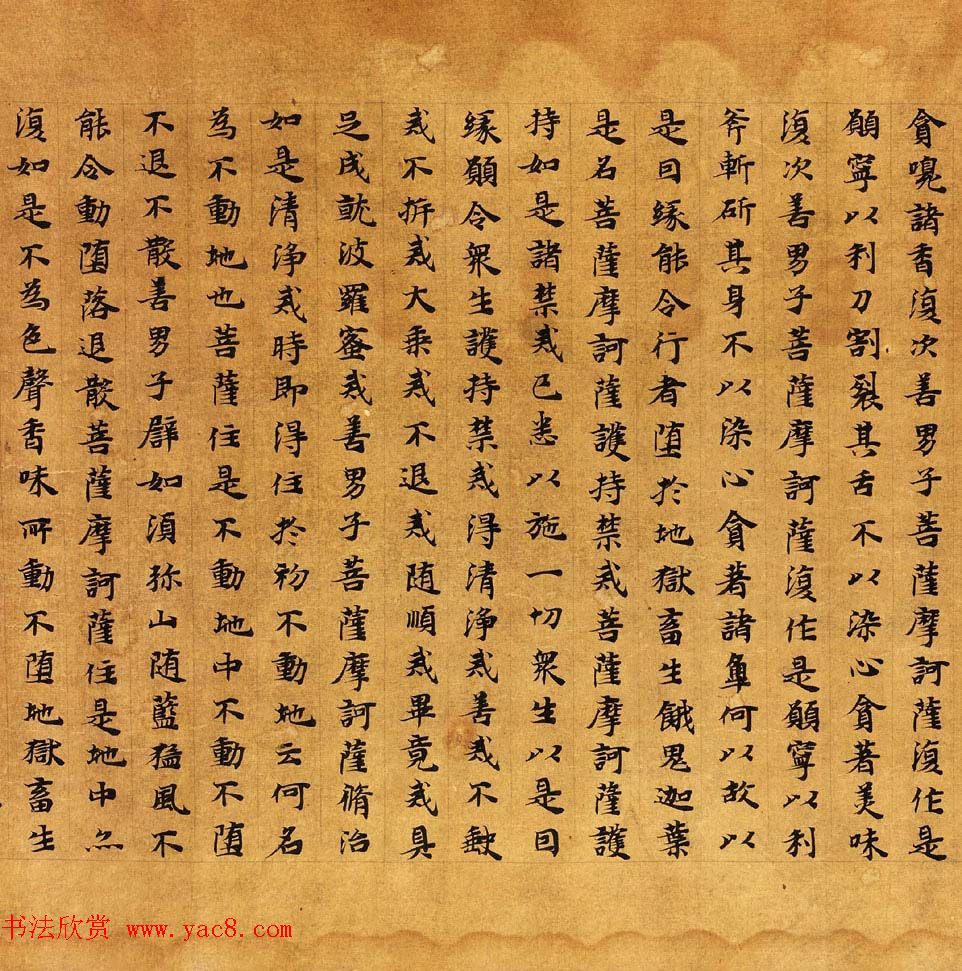 貪嗅諸香復次善男子菩薩摩訶薩復作是
願寧以利刀割裂其舌不以染心貪著美味
復次善男子菩薩摩訶薩復作是願寧以利
斧斬斫其身不以染心貪著諸觸何以故以
是因緣能令行者墮於地獄畜生餓鬼迦葉
是名菩薩摩訶薩護持禁戒菩薩摩訶薩護
持如是諸禁戒已悉以施一切眾生以是因
緣願令眾生護持禁戒得清淨戒善戒不缺
戒不析戒大乘戒不退戒随順戒畢竟戒具
足成就波羅蜜戒善男子菩薩摩訶薩脩治
如是清淨戒時即得住於初不動地云何名
為不動地也菩薩住是不動地中不動不墮
不退不散善男子譬如須弥山随藍猛風不
能令動墮落退散菩薩摩訶薩住是地中亦
復如是不為色聲香味所動不墮地獄畜生
书法欣赏 www.yac8.com